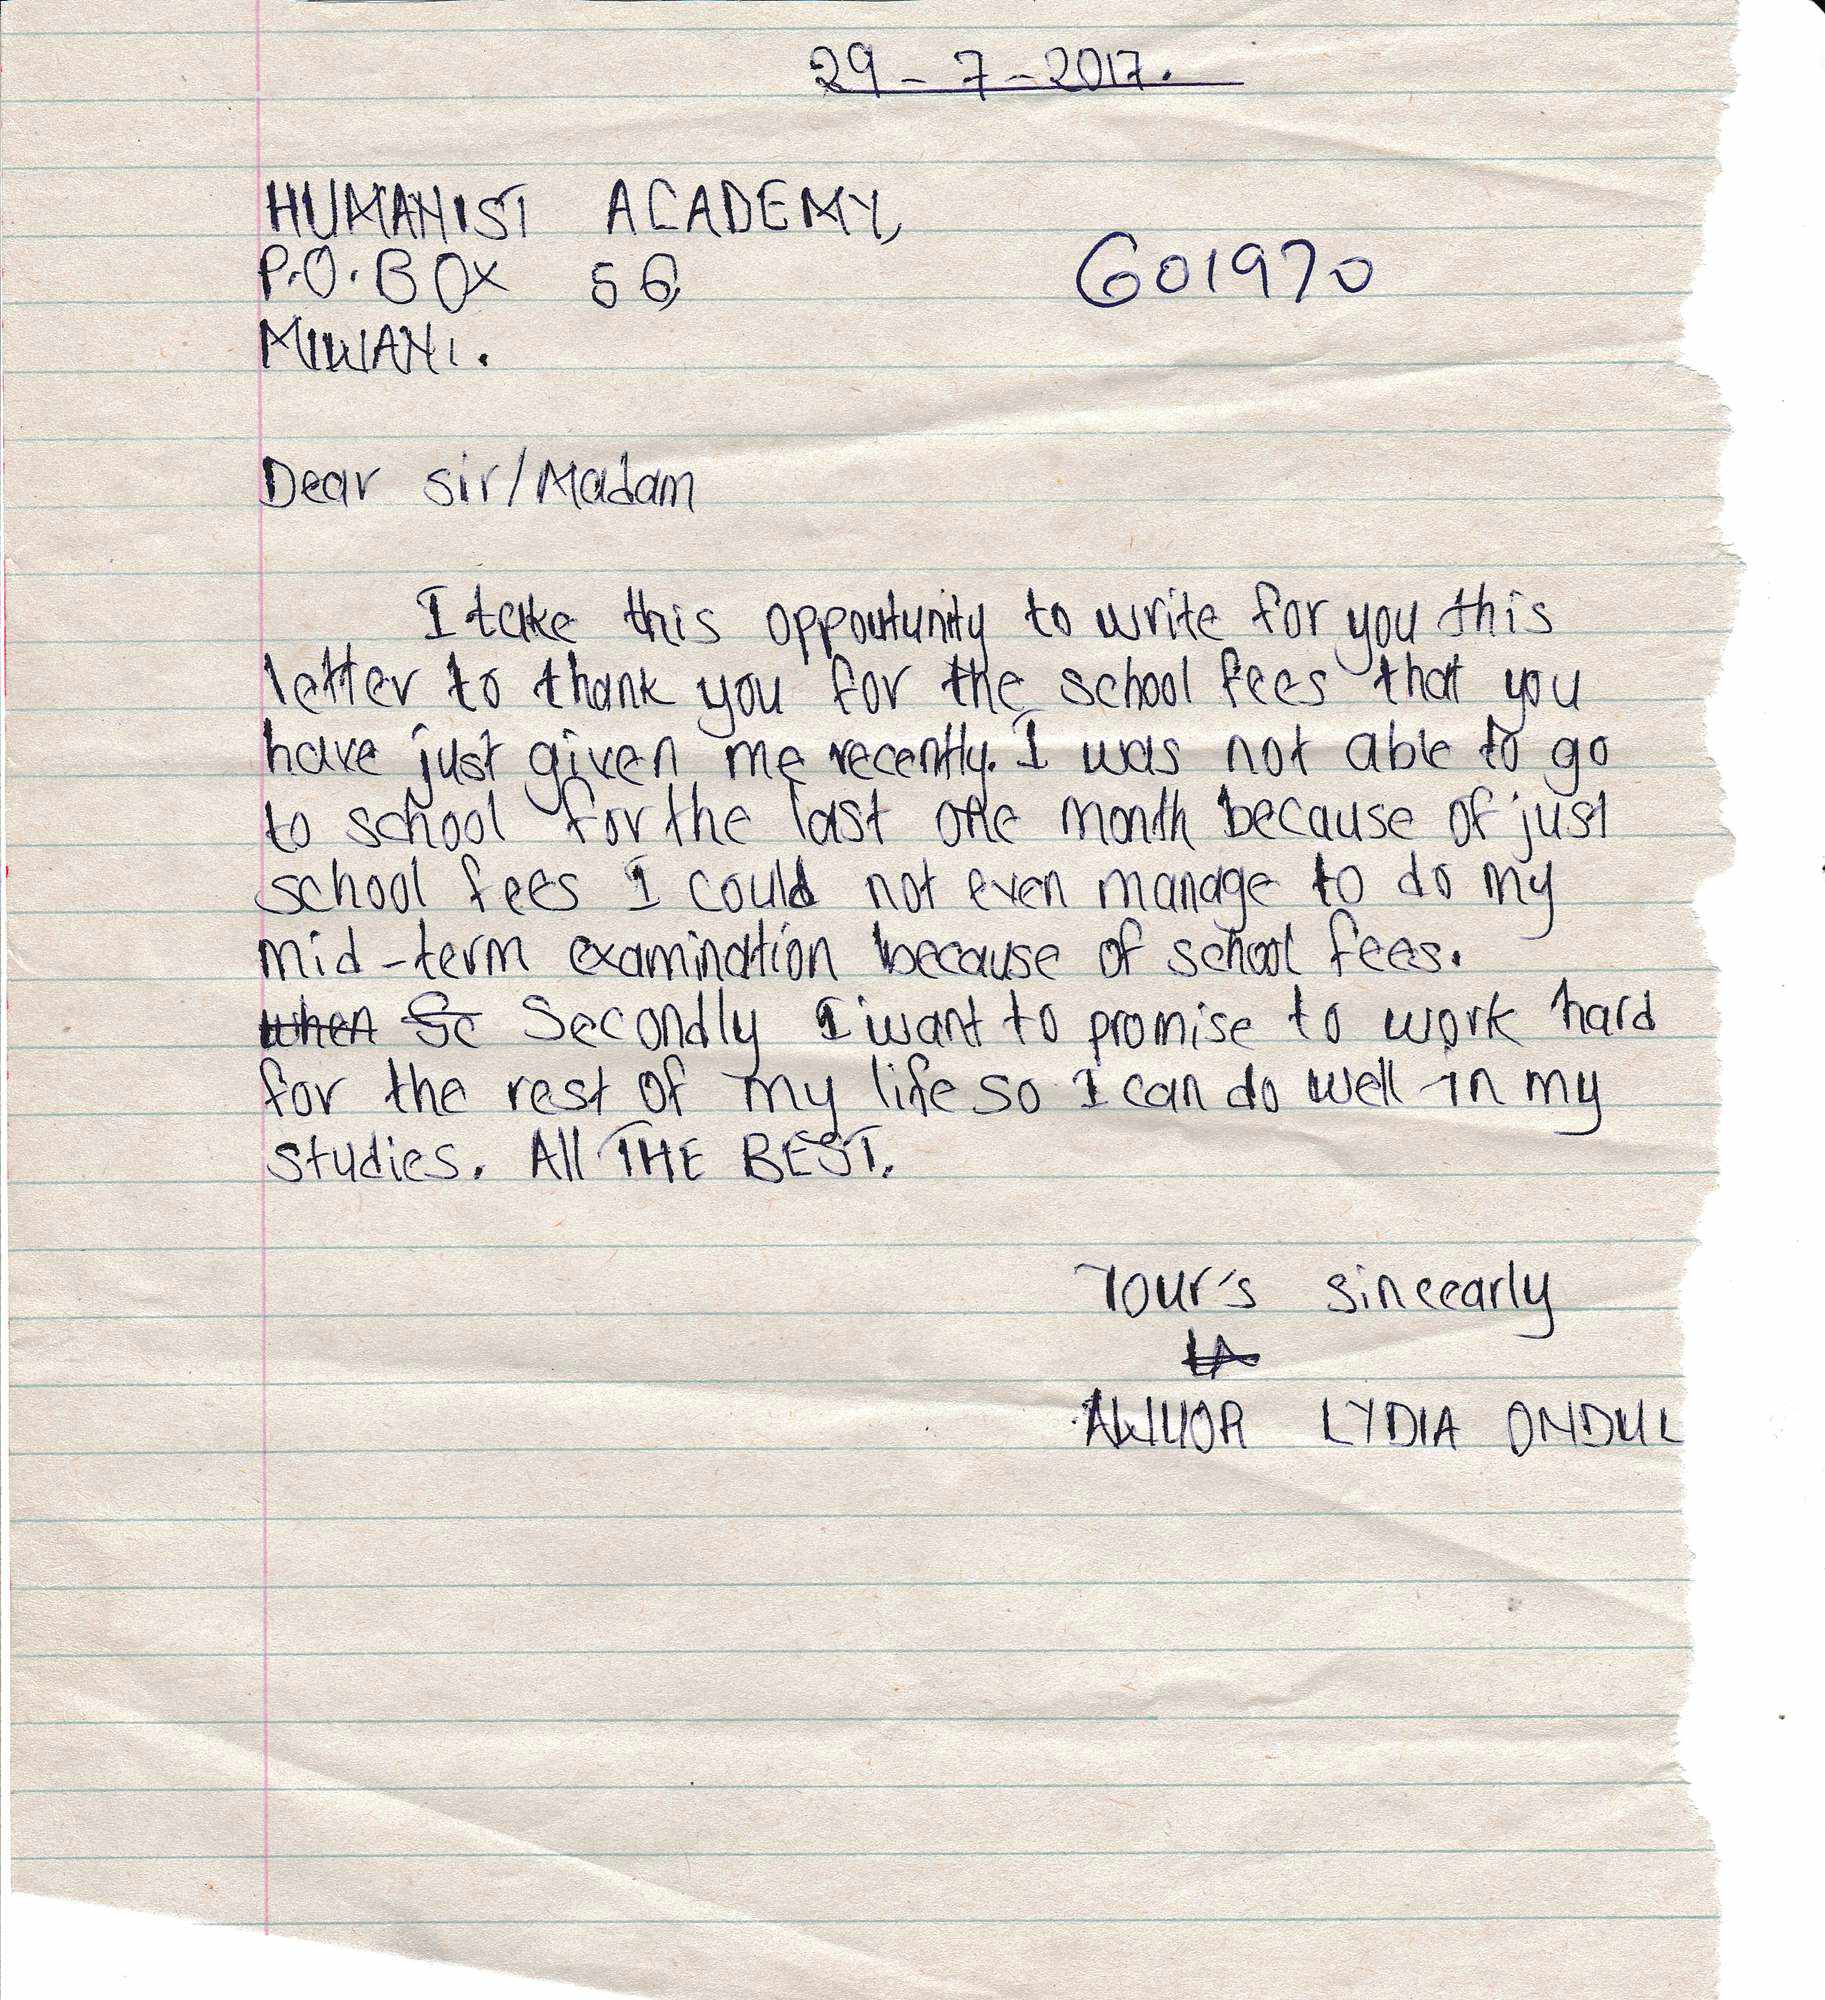 29-7-2017.
HUMANIST ACADEMY,
P.O.BOX 56,
G01970
MIWANI.
Dear sir/Madam
I take this oppoutunity to write for you this
letter to thank you for the school fees that you
have just given me recently. I was not able to go
to school for the last one month because of just
school fees I could not even manage to do my
mid-term examination because of school fees.
when Sc Secondly I want to promise to work hard
for the rest of my life so I can do well in my
studies. All THE BEST.
Your's sincearly
LA
AWUOR LYDIA ONDUL